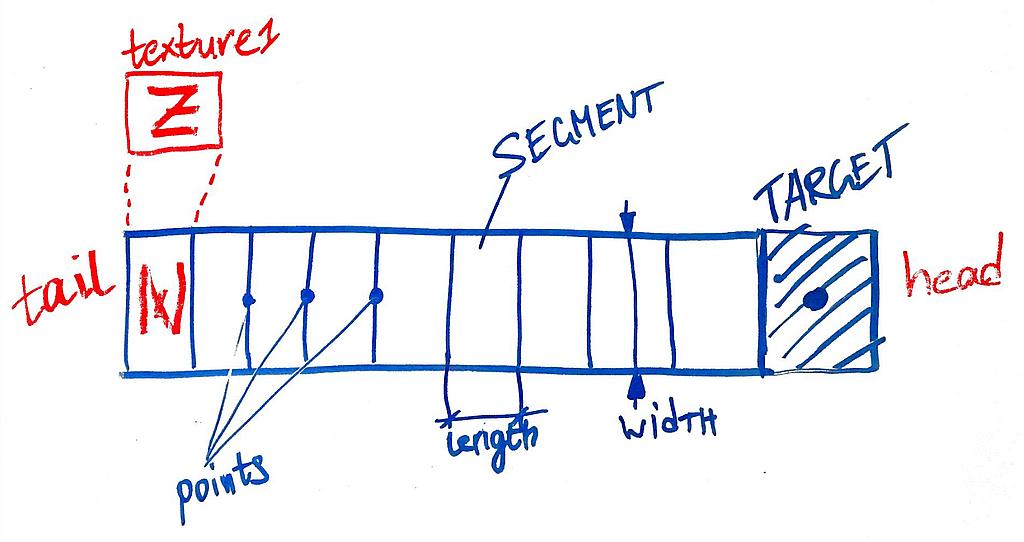 texture1
Z
SEGMENT
TARGET
tail
N
head
points
length
width